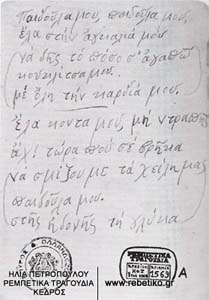 Παιδούλα μου, παιδούλα μου,
έλα στην αγκαλιά μου
να δης, το πόσο σ' αγαπώ
κουκλίτσα μου.
με όλη την καρδιά μου.
Έλα κοντά μου, μη ντραπής
άχ! τώρα πού σε βρήκα
να σμίξουμε τα χείλη μας
παιδούλα μου.
στης ηδονής τη γλύκα
ΗΛΙΑ ΠΕΤΡΟΠΟΥΛΟΥ
ΡΕΜΠΕΤΙΚΑ ΤΡΑΓΟΥΔΙΑ
ΚΕΔΡΟΣ
ΡΕΜΠΕΤΙΚΑ
ΤΡΑΓΟΥΔΙΑ
1565
A
www.rebetiko.gr